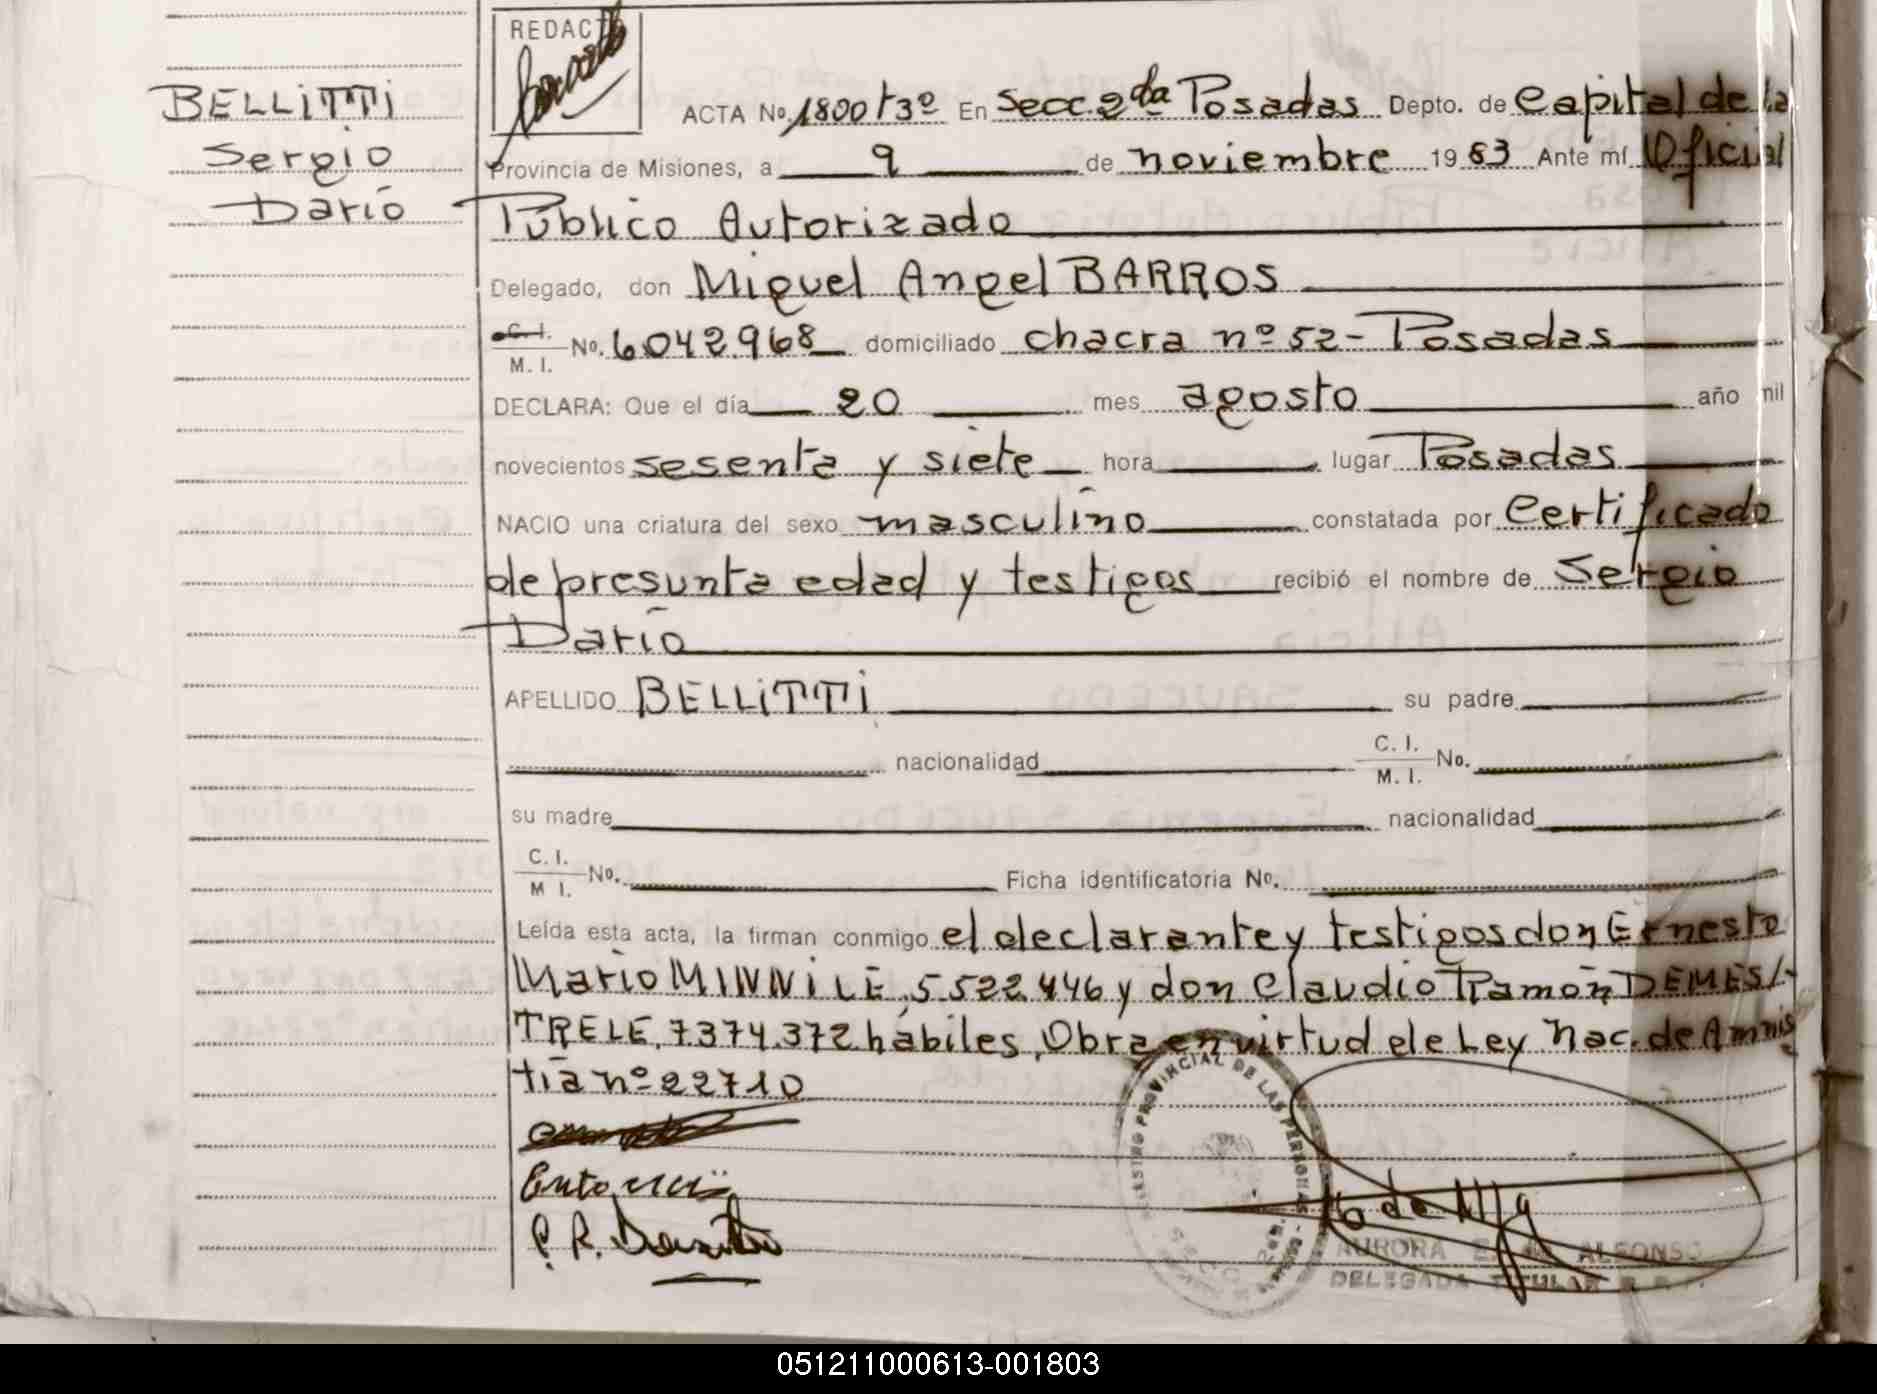 REDACT
BELLITTI
Sergio
Darío
ACTA No. 1800 T3º En Secc. 2da Posadas Depto. de Capital de la
Provincia de Misiones, a 9 de noviembre 1983 Ante mí Oficial
Público Autorizado
Delegado, don Miguel Angel BARROS
C. I. M. I. No. 6042968 domiciliado chacra nº 52 - Posadas
DECLARA: Que el día 20 mes agosto año mil
novecientos sesenta y siete hora lugar Posadas
NACIO una criatura del sexo masculino constatada por Certificado
de presunta edad y testigos recibió el nombre de Sergio
Darío
APELLIDO BELLITTI su padre
nacionalidad C. I. M. I. No.
su madre nacionalidad
C. I. M I. No. Ficha identificatoria No.
Leída esta acta, la firman conmigo el declarante y testigos don Ernesto
Mario MINNI LE, 5522.446 y don Claudio Ramón DEMES/-
TRE LE, 7.374.372 hábiles, Obra en virtud de Ley Nac. de Amnis
tía nº 22710
REGISTRO PROVINCIAL DE LAS PERSONAS
AURORA E. de ALFONSO
DELEGADA TITULAR R. P. P.
051211000613-001803